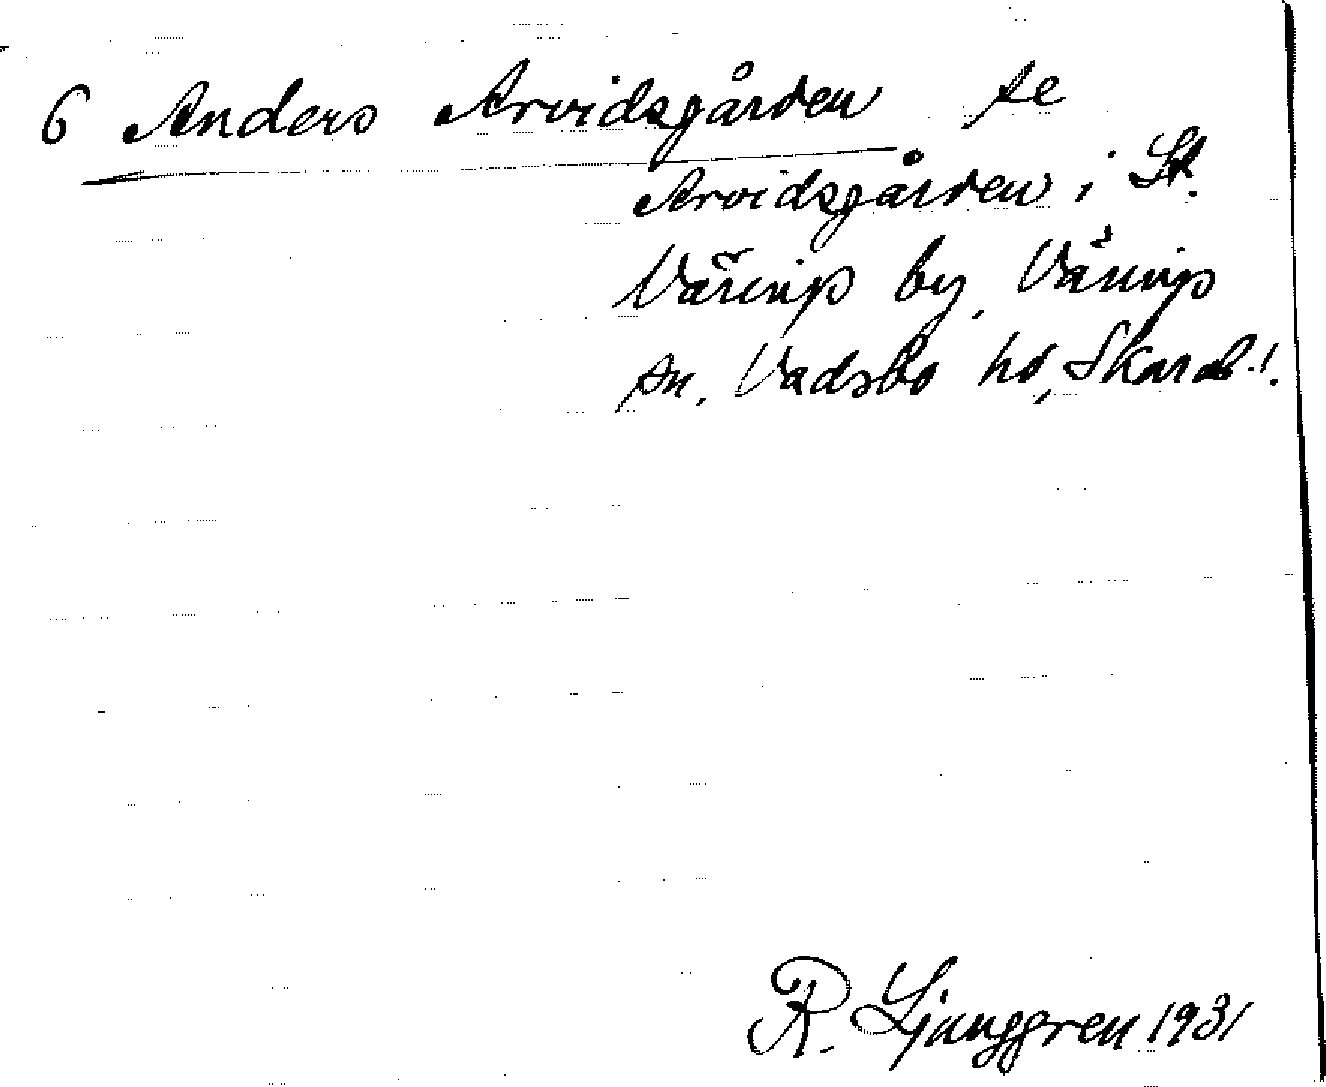 6 Anders Arvidsgården se
Arvidsgården i St.
Väring by, Väring
sn. Vadsbo hd, Skarab. l.
R. Ljunggren 1931